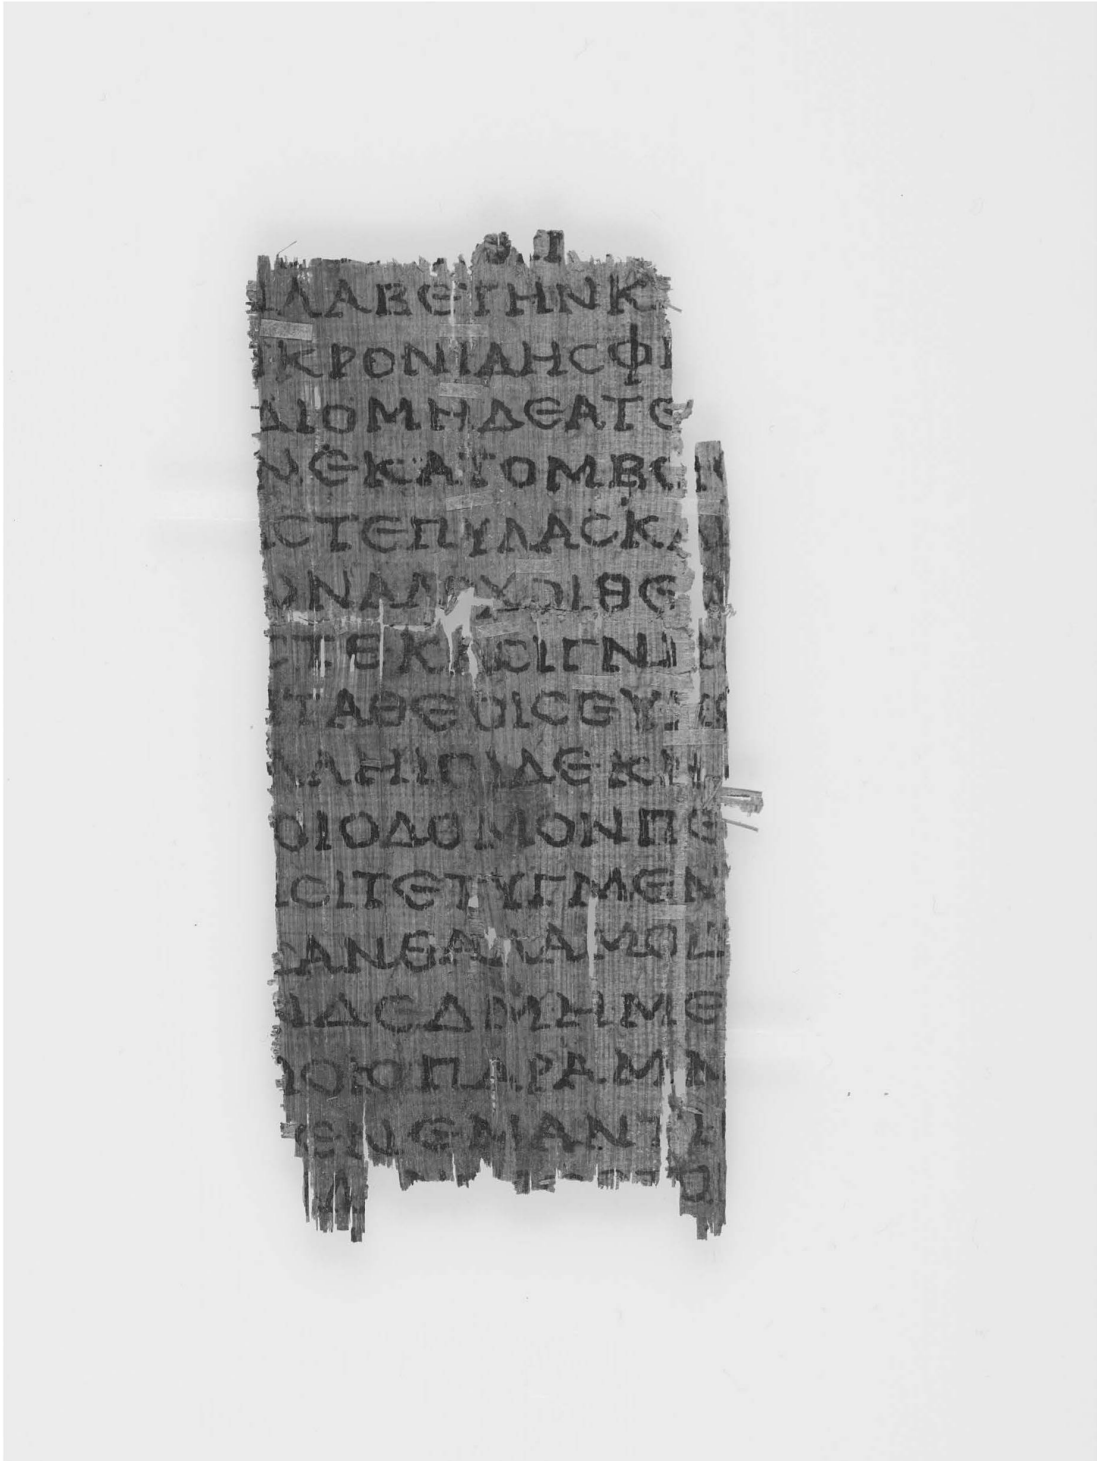 ΛΑΒΕΤΗΝΚ
ΚΡΟΝΙΔΗϹΦΡ
ΔΙΟΜΗΔΕΑΤΕ
ΝΕΚΑΤΟΜΒΟΙ
ΑϹΤΕΠΥΛΑϹΚΑΙ
ΩΝΑΛΟΧΟΙΘΕΟ
ϹΤΕΚΑϹΕΙΓΝΗΤ
ΙΤΑΘΕΟΙϹΕΥΧΕ
ΛΛΗΙϹΙΔΕΚΗΔ
ΟΙΟΔΟΜΟΝΠΕ
ϹΕΙΤΕΤΥΓΜΕΝ
ϹΑΝΘΑΛΑΜΟΙΞ
ΝΔΕΔΜΗΜΕ
ΜΟΙΟΠΑΡΑΜΝ
ΘΕΝΕΝΑΝΤΙ